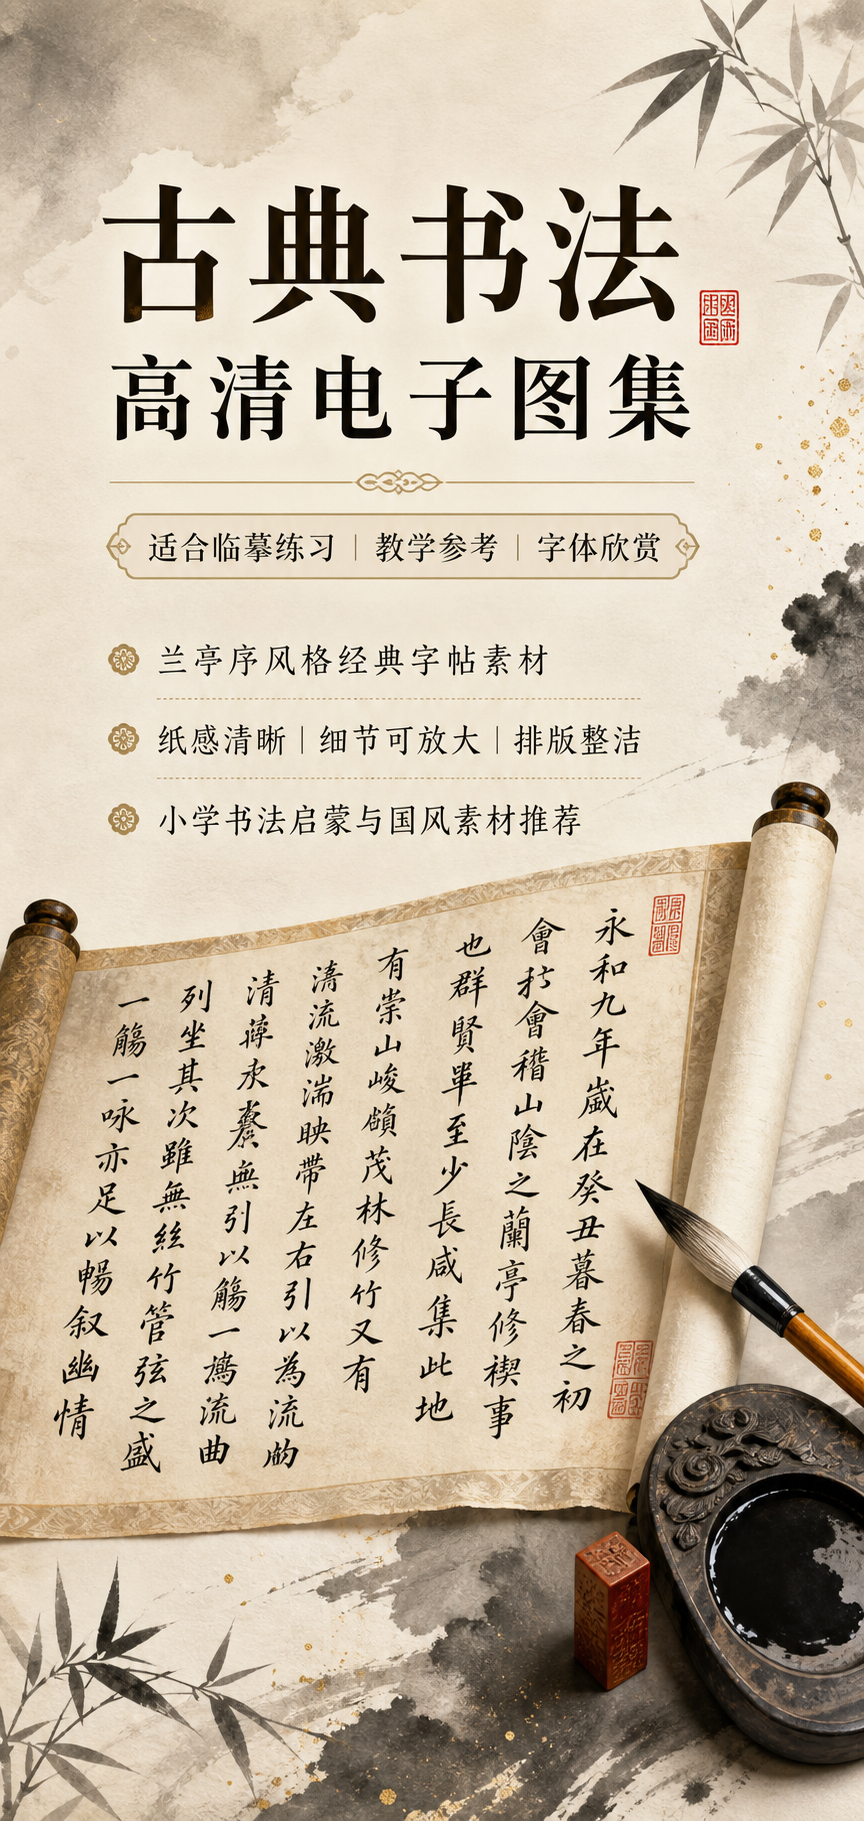 古典书法
高清电子图集
适合临摹练习｜教学参考｜字体欣赏
兰亭序风格经典字帖素材
纸感清晰｜细节可放大｜排版整洁
小学书法启蒙与国风素材推荐
永和九年歲在癸丑暮春之初
會扵會稽山陰之蘭亭修禊事
也群賢畢至少長咸集此地
有崇山峻茂林修竹又有
流激湍映帶左右引以為流
清無引以觴一流曲
列坐其次雖無絲竹管弦之盛
一觴一咏亦足以暢叙幽情